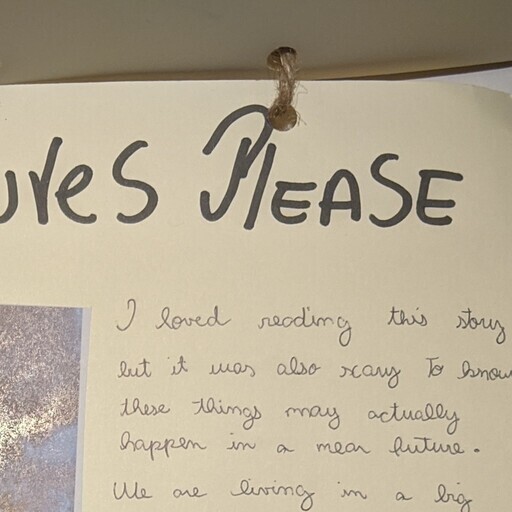 ures PLEASE
I loved reading this story
but it was also scary to know
these things may actually
happen in a near future.
We are living in a big